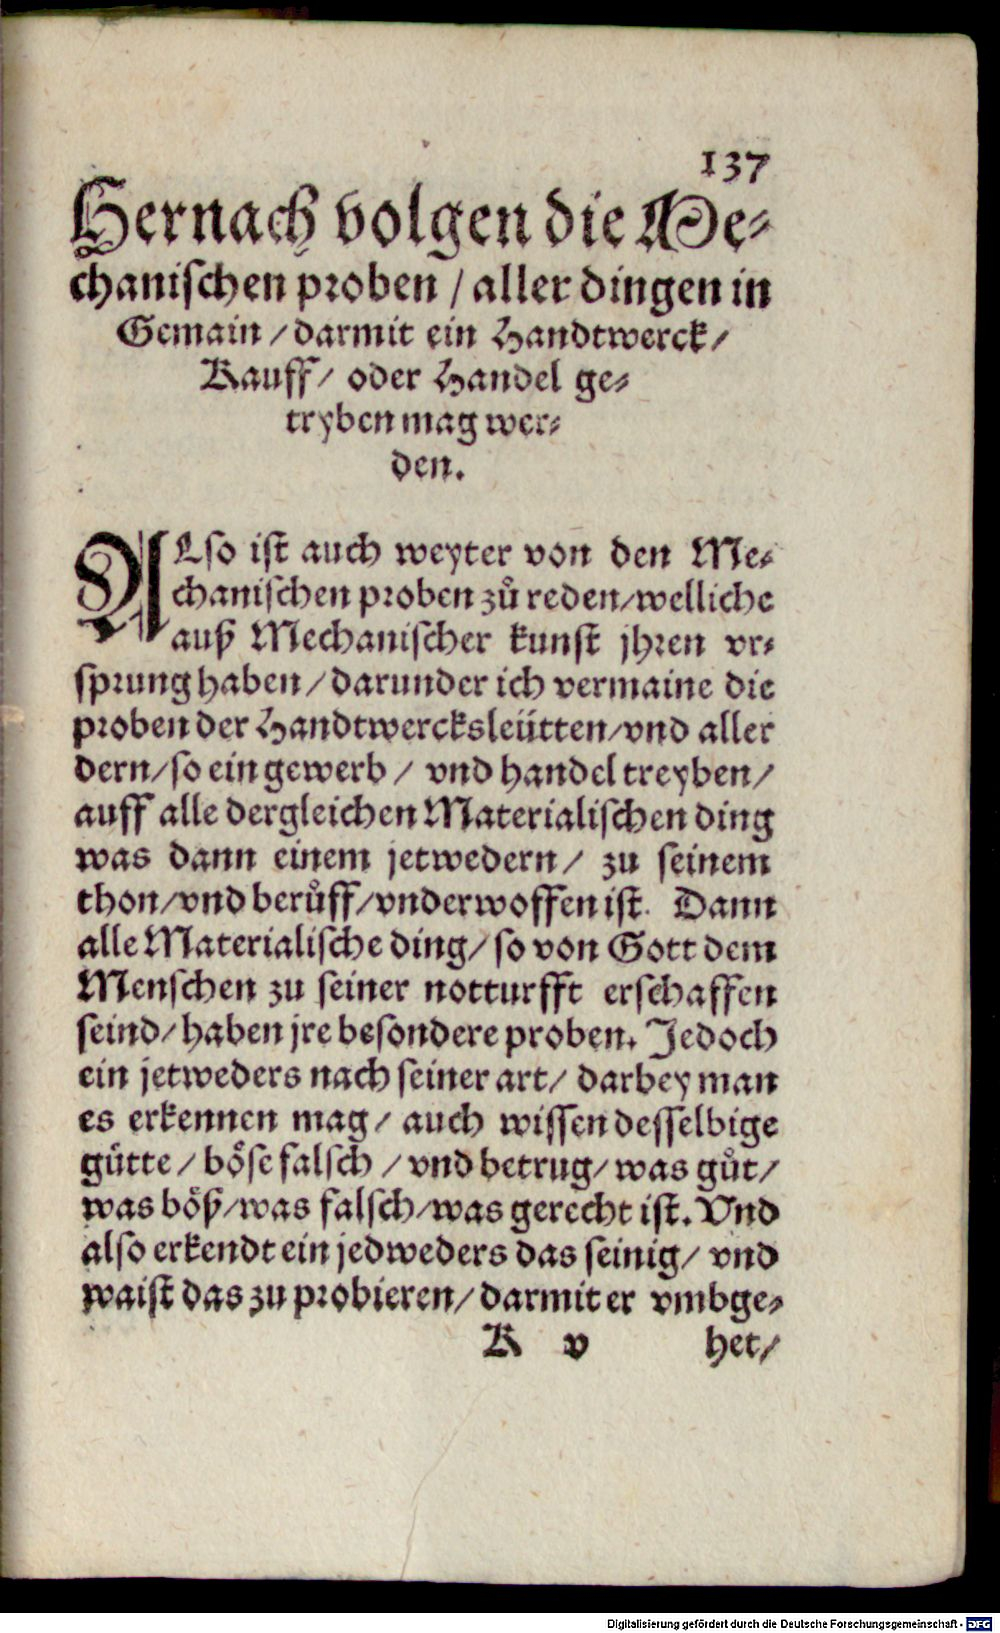 137
Hernach volgen die Me⸗
chanischen proben / aller dingen in
Gemain / darmit ein Handtwerck /
Kauff / oder Handel ge⸗
tryben mag wer⸗
den.
ALso ist auch weyter von den Me⸗
chanischen proben zů reden / welliche
auß Mechanischer kunst jhren vr⸗
sprung haben / darunder ich vermaine die
proben der Handtwercksleütten / vnd aller
dern / so ein gewerb / vnd handel treyben /
auff alle dergleichen Materialischen ding
was dann einem jetwedern / zu seinem
thon / vnd berůff / vnderwoffen ist. Dann
alle Materialische ding / so von Gott dem
Menschen zu seiner notturfft erschaffen
seind / haben jre besondere proben. Jedoch
ein jetweders nach seiner art / darbey man
es erkennen mag / auch wissen desselbige
gütte / böse falsch / vnd betrug / was gůt /
was böß / was falsch / was gerecht ist. Vnd
also erkendt ein jedweders das seinig / vnd
waist das zu probieren / darmit er vmbge⸗
K v het /
Digitalisierung gefördert durch die Deutsche Forschungsgemeinschaft - DFG